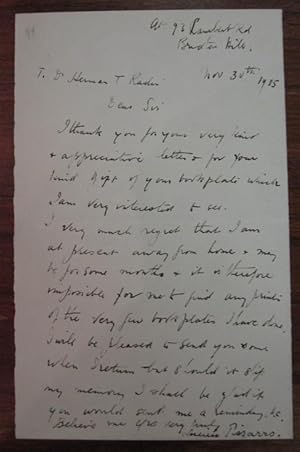 At 93 Lambert Rd
Brixton Hill.
Nov 30th 1915
T. Dr Herman T Radin
Dear Sir
I thank you for your very kind
& appreciative letter & for your
kind gift of your bookplate which
I am very interested to see.
I very much regret that I am
at present away from home & may
be for some months & it is therefore
impossible for me to find any prints
of the very few bookplates I have done,
I will be pleased to send you some
when I return but should it slip
my memory I shall be glad if
you would send me a reminder,
Believe me yrs very truly
Lucien Pissarro.